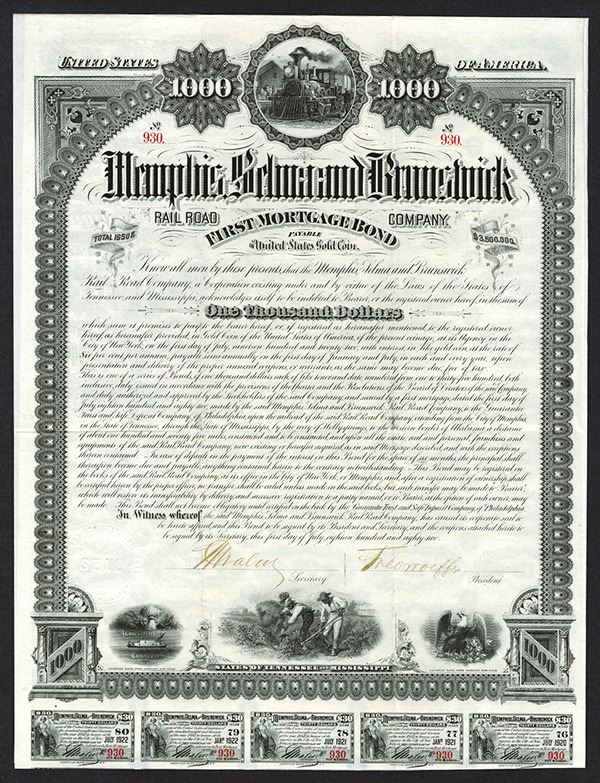 UNITED STATES
OF AMERICA.
1000
1000
No
930.
No
930.
Memphis, Selma and Brunswick
RAIL ROAD
COMPANY.
FIRST MORTGAGE BOND
PAYABLE
in United States Gold Coin.
TOTAL ISSUE
$3,500,000.
Know all men by these presents, that the Memphis, Selma and Brunswick
Rail Road Company, a Corporation existing under and by virtue of the Laws of the States of
Tennessee and Mississippi, acknowledges itself to be indebted to Bearer, or the registered owner hereof, in the sum of
One Thousand Dollars
which sum it promises to pay to the bearer hereof, or, if registered as hereinafter mentioned, to the registered owner
hereof as hereinafter provided, in Gold Coin of the United States of America, of the present coinage, at its Agency in the
City of New York, on the first day of July, nineteen hundred and twenty two, with interest, in like gold coin, at the rate of
Six per cent per annum, payable semi-annually on the first day of January and July, in each and every year, upon
presentation and delivery of the proper annexed coupons, or warrants, as the same may become due, free of tax.
This is one of a series of Bonds, of one thousand dollars each, of like tenor and date, numbered from one to thirty five hundred, both
inclusive, duly issued in accordance with the provisions of the Charter and the Resolutions of the Board of Directors of the said Company
and duly authorized and approved by the Stockholders of the said Company, and secured by a first mortgage, dated the first day of
July, eighteen hundred and eighty two, made by the said Memphis, Selma and Brunswick Rail Road Company, to the Guarantee
Trust and Safe Deposit Company, of Philadelphia, upon the railroad of the said Rail Road Company, extending from the City of Memphis,
in the State of Tennessee, through the State of Mississippi, by the way of Holly Springs, to the Western border of Alabama, a distance
of about one hundred and seventy five miles, constructed and to be constructed, and upon all the estate, real and personal, franchises and
equipments of the said Rail Road Company, now existing or hereafter acquired, as in said Mortgage described, and with the exceptions
therein contained. In case of default in the payment of the interest on this Bond for the space of six months, the principal shall
thereupon become due and payable, anything contained herein to the contrary notwithstanding. This Bond may be registered on
the books of the said Rail Road Company, at its offices in the City of New York, or Memphis, and after a registration of ownership shall
be certified hereon by the proper officer, no transfer shall be valid unless made on the said books, but such transfer may be made to "Bearer,"
which will restore its transferability by delivery, and successive registration to a party named, or to Bearer, at the option of each owner, may
be made. This Bond shall not become obligatory until certified on the back by the Guarantee Trust and Safe Deposit Company, of Philadelphia.
In Witness whereof the said Memphis, Selma and Brunswick Rail Road Company, has caused its corporate seal to
be hereto affixed, and this Bond to be signed by its President and Secretary, and the coupons attached hereto to
be signed by its Secretary, this first day of July, eighteen hundred and eighty two.
Secretary
President
AGRICULTURE
COMMERCE
STATES OF TENNESSEE AND MISSISSIPPI
1000
1000
$30 MEMPHIS, SELMA AND BRUNSWICK $30
THIRTY DOLLARS
80
JULY 1922
930
$30 MEMPHIS, SELMA AND BRUNSWICK $30
THIRTY DOLLARS
79
JANY 1922
930
$30 MEMPHIS, SELMA AND BRUNSWICK $30
THIRTY DOLLARS
78
JULY 1921
930
$30 MEMPHIS, SELMA AND BRUNSWICK $30
THIRTY DOLLARS
77
JANY 1921
930
$30 MEMPHIS, SELMA AND BRUNSWICK $30
THIRTY DOLLARS
76
JULY 1920
930